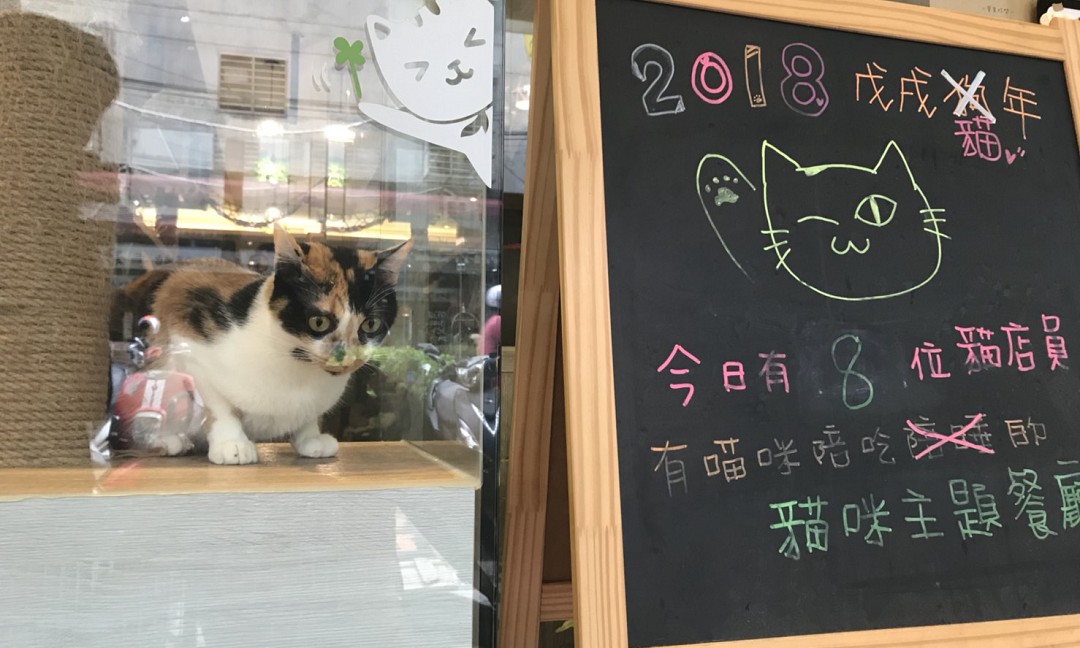 2018 戊戌狗年
貓
今日有 8 位貓店員
有喵咪陪吃陪睡的
貓咪主題餐廳